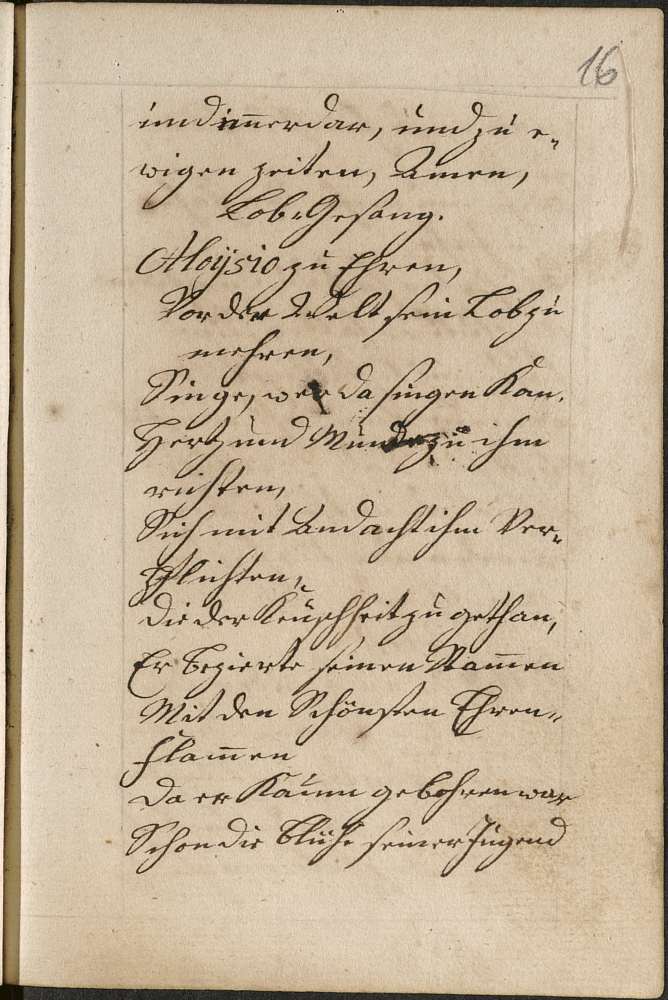 16
und immerdar, und zu e„
wigen zeiten, Amen,
Lob-Gesang.
Aloÿsio zu Ehren,
Vor der Welt sein Lob zu
mehren,
Singe, wer da singen Kan,
Hertz und Munde zu ihm
richten,
Sich mit Andacht ihm Ver„
Pflichten,
die der Keuschheit zu gethan,
Er bezierte seinen Stammen
Mit den Schönsten Ehren„
flammen
da er Kaum gebohren war
Schon die blühe seiner Jugend